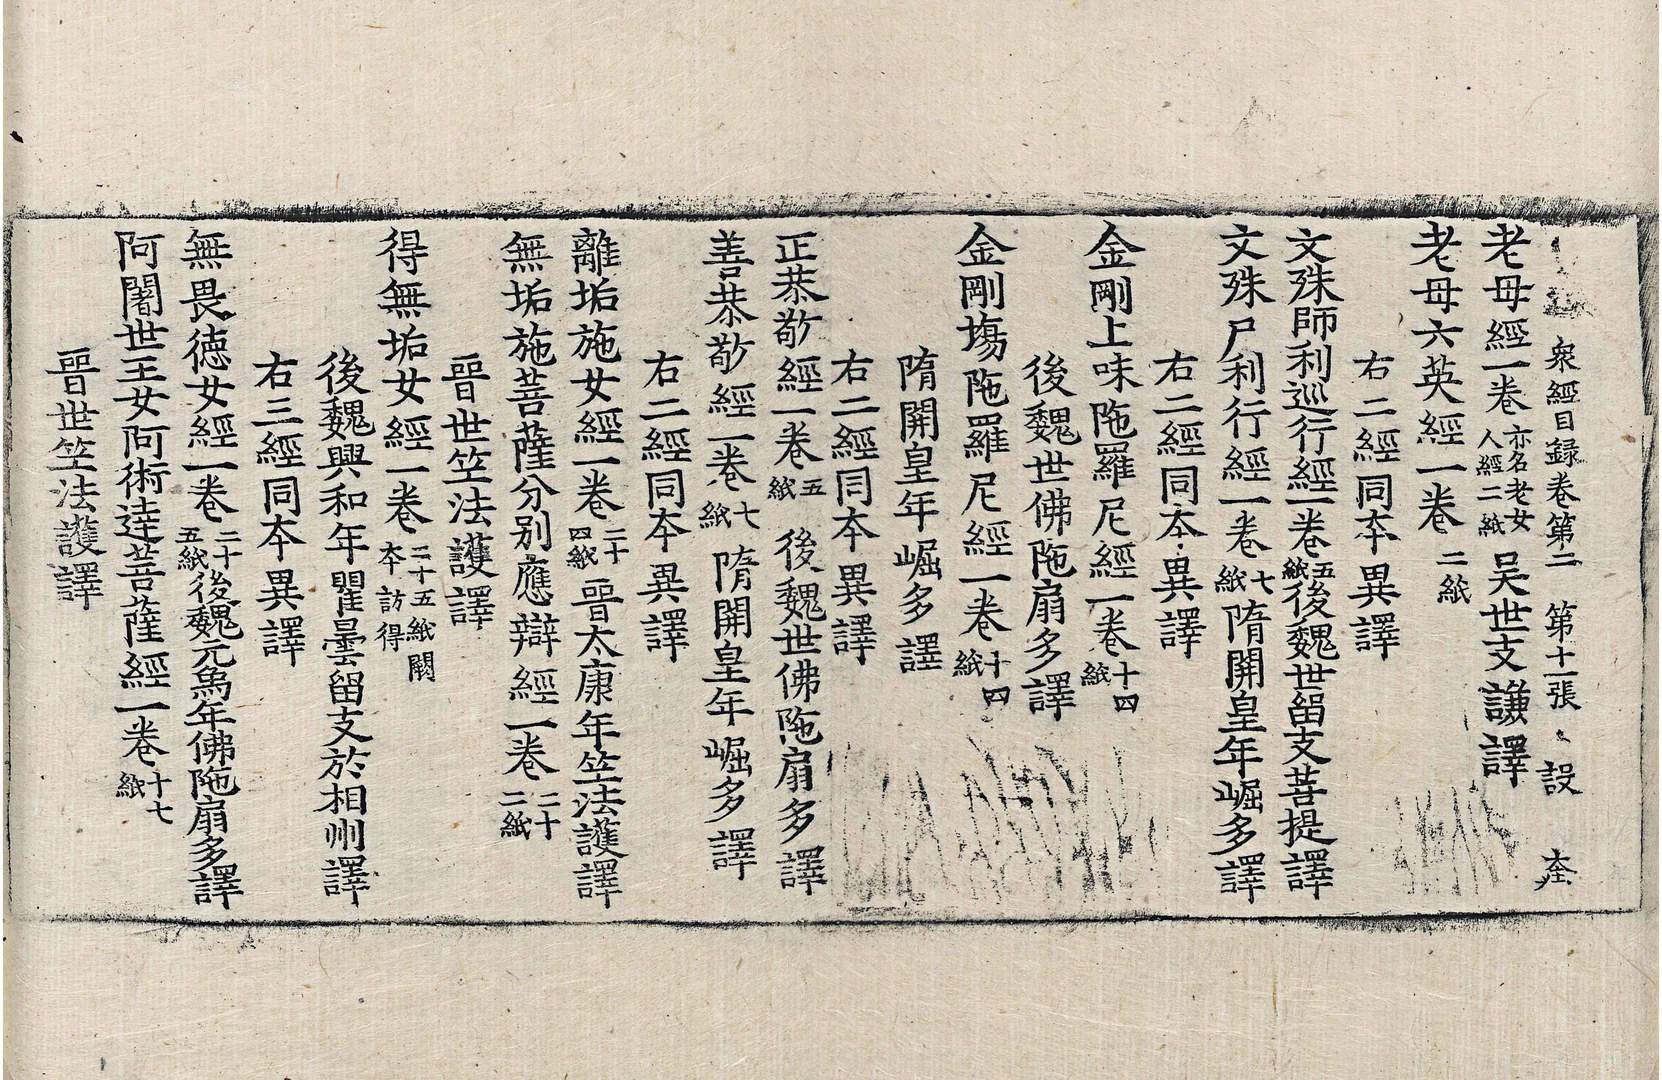 衆經目録卷第二　第十一張　設
老母經一卷亦名老女人經二紙吴世支謙譯
老母六英經一卷二紙
右二經同夲異譯
文殊師利巡行經一卷五紙後魏世留支菩提譯
文殊尸利行經一卷七紙隋開皇年崛多譯
右二經同夲異譯
金剛上味陁羅尼經一卷十四紙
後魏世佛陁扇多譯
金剛場陁羅尼經一卷十四紙
隋開皇年崛多譯
右二經同夲異譯
正恭敬經一卷五紙後魏世佛陁扇多譯
善恭敬經一卷七紙隋開皇年崛多譯
右二經同夲異譯
離垢施女經一卷二十四紙晉太康年竺法護譯
無垢施菩薩分别應辯經一卷二十二紙
晉世竺法護譯
得無垢女經一卷二十五紙闕夲訪得
後魏興和年瞿曇留支於相州譯
右三經同夲異譯
無畏德女經一卷二十五紙後魏元象年佛陁扇多譯
阿闍世王女阿術達菩薩經一卷十七紙
晉世竺法護譯